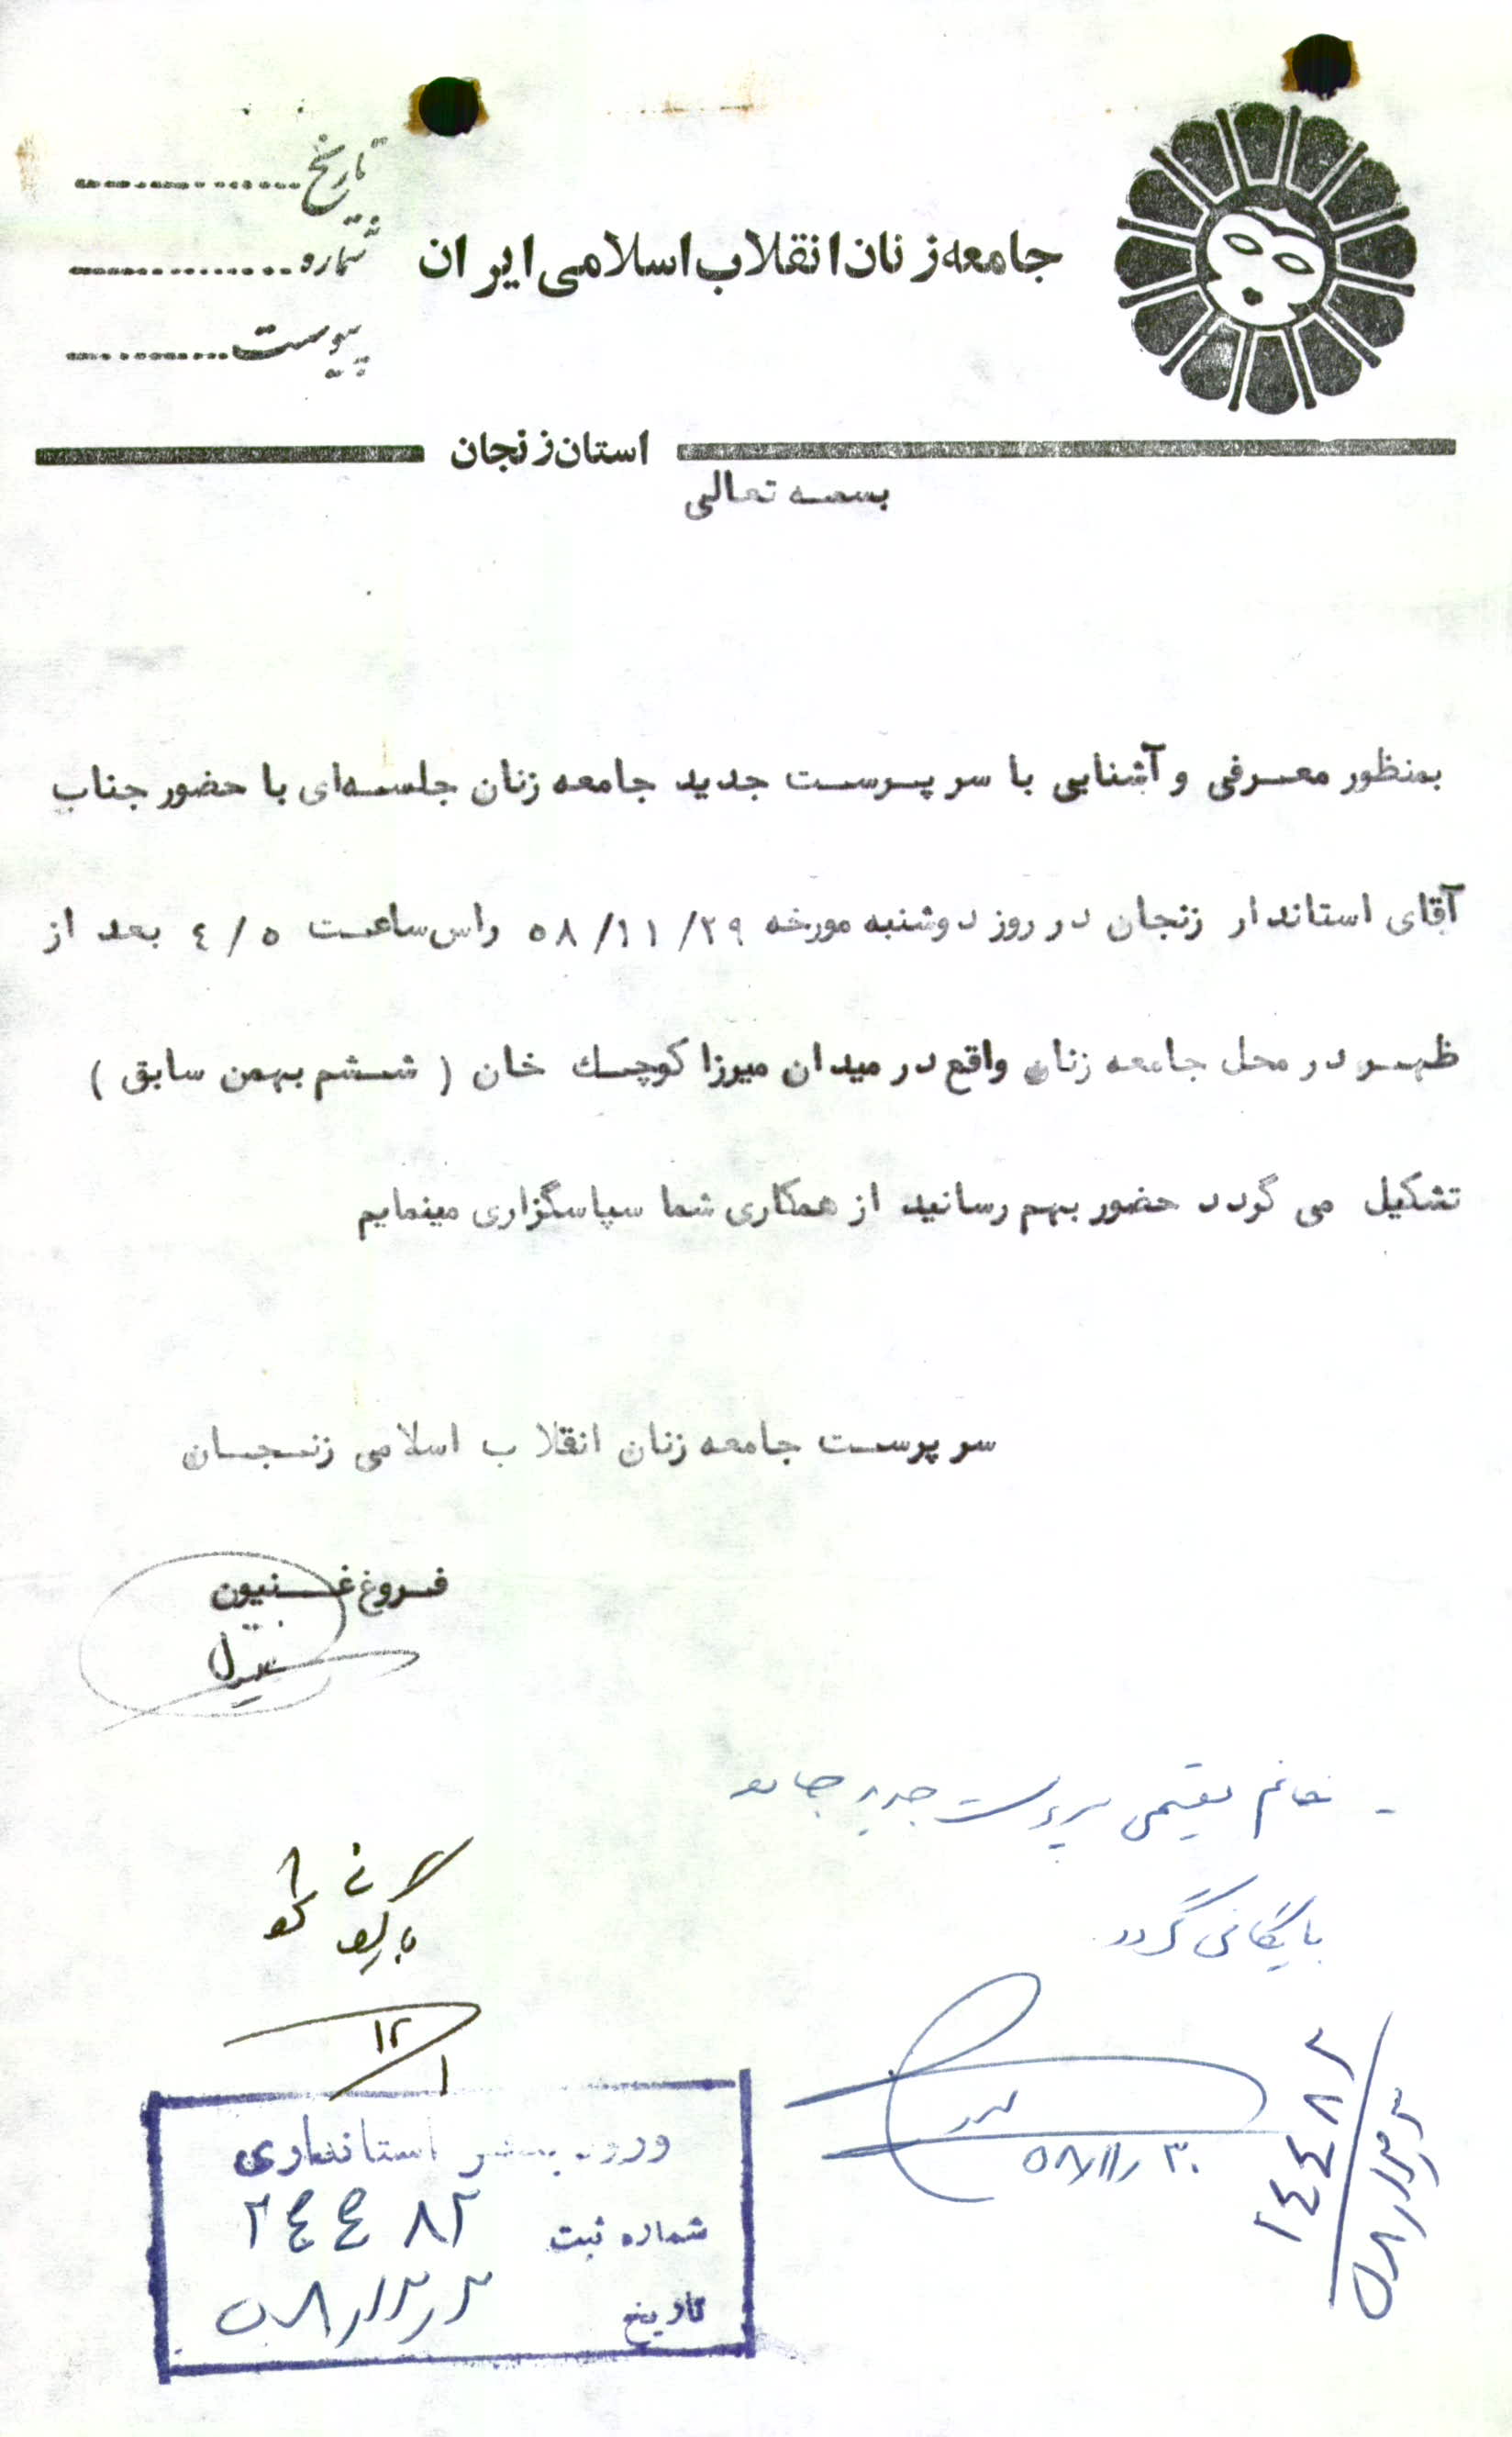 تاریخ..............
جامعه زنان انقلاب اسلامی ایران
شماره..............
پیوست............
استان زنجان
بسمه تعالی
بمنظور معرفی و آشنایی با سرپرست جدید جامعه زنان جلسه‌ای با حضور جناب
آقای استاندار زنجان در روز دوشنبه مورخه ٥٨/١١/٢٩ راس ساعت ٤/٥ بعد از
ظهر در محل جامعه زنان واقع در میدان میرزا کوچک خان ( ششم بهمن سابق )
تشکیل می گردد حضور بهم رسانید از همکاری شما سپاسگزاری مینمایم
سرپرست جامعه زنان انقلاب اسلامی زنجان
فروغ غنیون
- خانم مقیمی سرپرست جدید جامعه
بایگانی گردد
۵۸/۱۱/۳۰
۱۲/۱
ورود بدفتر استانداری
شماره ثبت ٢٤٤٨٢
تاریخ ۵۸/۱۲/۲
٢٤٤٨٢
۵۸/۱۲/۲